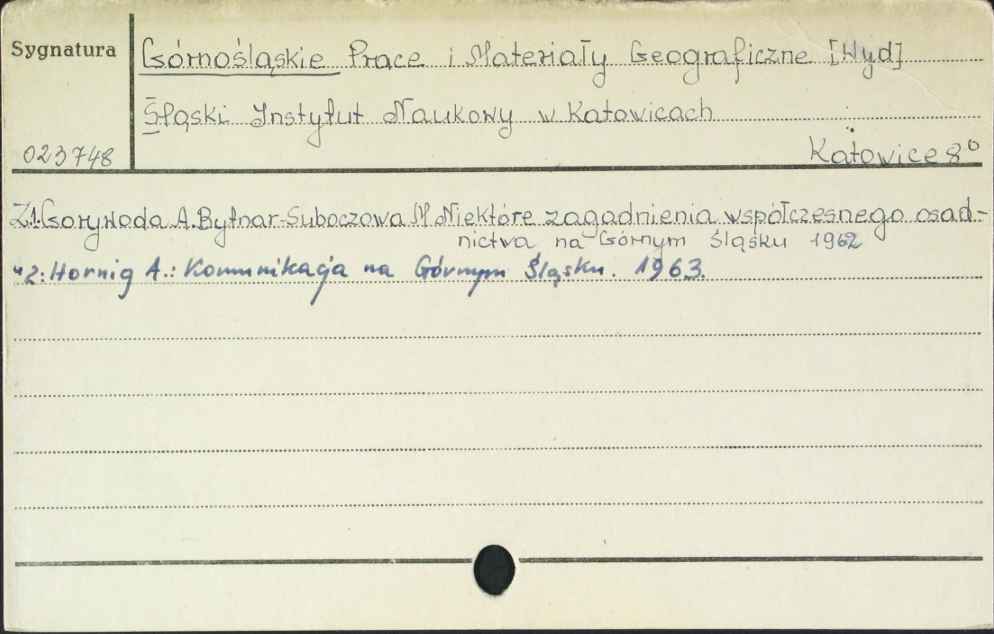 Sygnatura
Górnośląskie Prace i Materiały Geograficzne [Wyd]
Śląski Instytut Naukowy w Katowicach
023748
Katowice 8°
Z1. Gorywoda A. Bytnar-Suboczowa M Niektóre zagadnienia współczesnego osad-
nictwa na Górnym Śląsku 1962
"2: Hornig A.: Komunikacja na Górnym Śląsku. 1963.